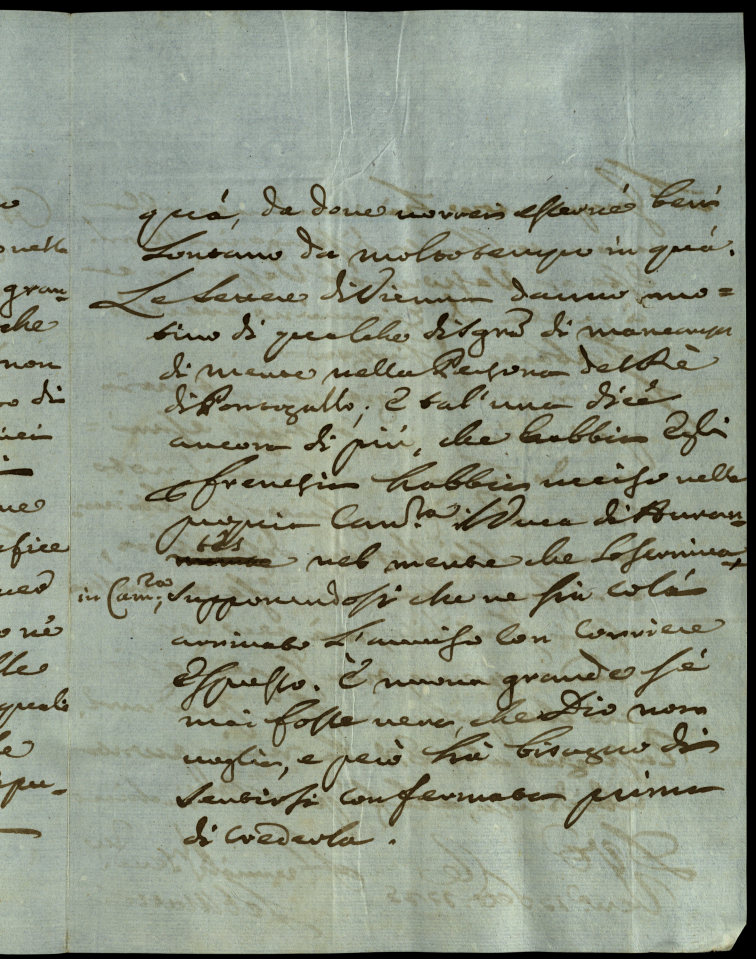 quà, da dove vorrei esserne ben
lontano da molto tempo in quà.
Le lettere di Vienna danno mo=
tivo di qualche disgra di mancanza
di mente nella Persona del Rè
di Portogallo; e tal'una dice
ancora di più, che habbia Egli
frenesia habbia ucciso nella
propria Camra il Duca di
nel mentre che lo serviva,
in Camra; supponendosi che ne sia colà
arrivato l'avviso con Corriere
Espresso. È nuova grande se
mai fosse vera, che Dio non
voglia, e però hà bisogno di
sentirsi confermata prima
di crederla.
o
nella
gran=
che
non
di
ne
efice
o nè
lle
quali
le
pu=